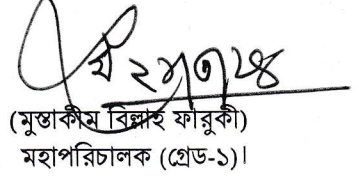 (মুস্তাকীম বিল্লাহ ফারুকী)
মহাপরিচালক (গ্রেড-১)।